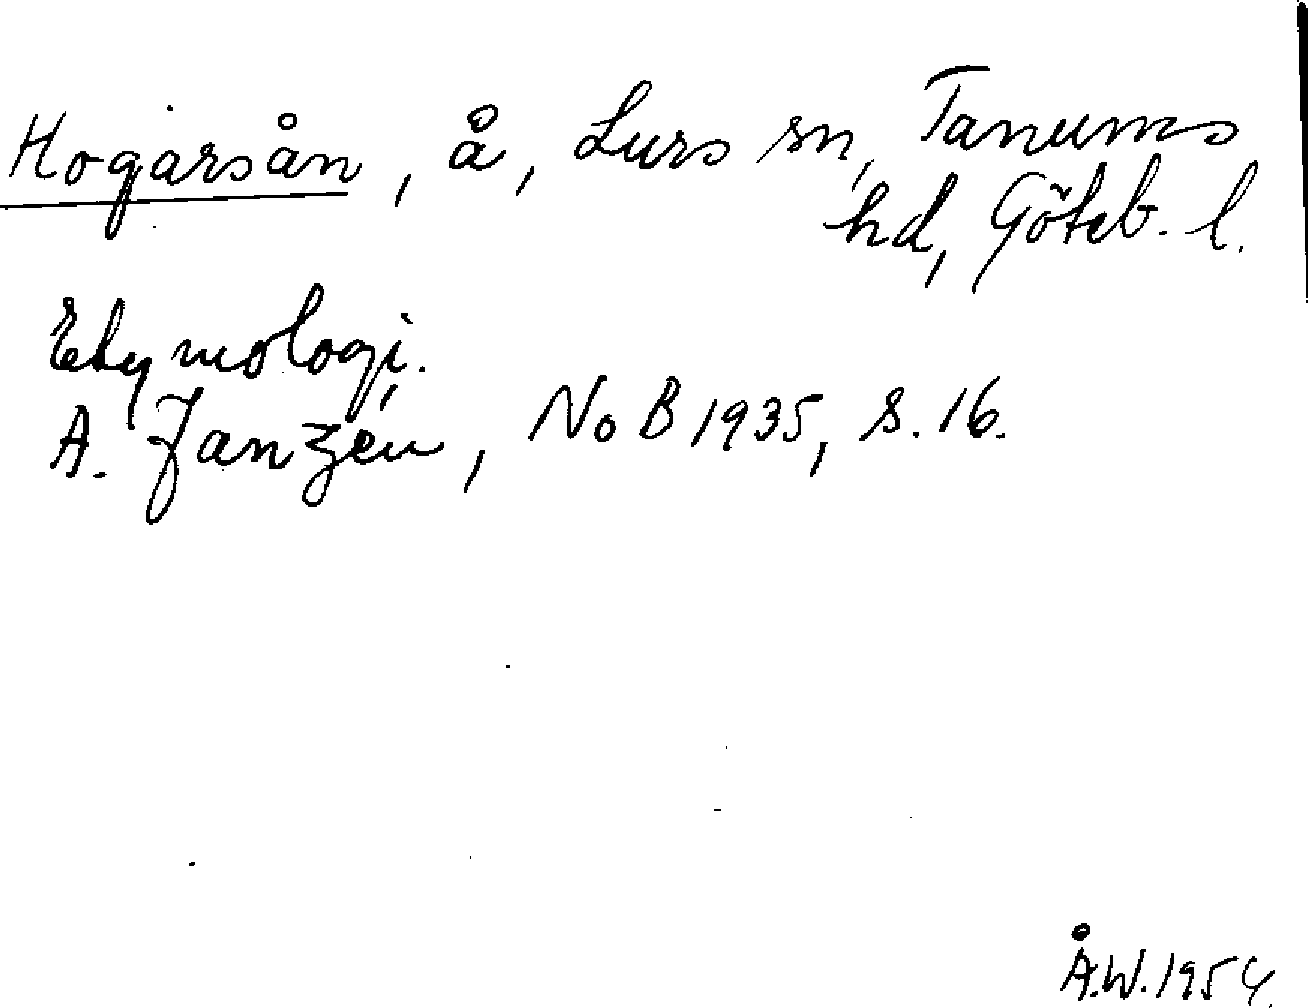 Hogarsån, å, Lurs sn, Tanums
hd, Göteb. l.
Etymologi.
A. Janzén, NoB 1935, s. 16.
Å.W. 1954.